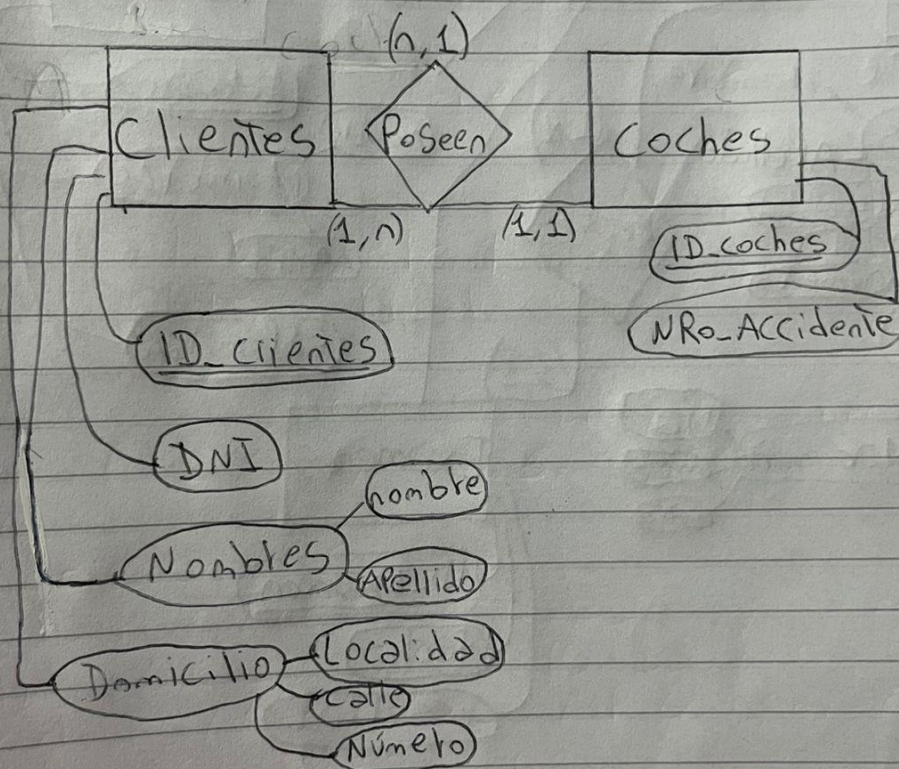 (n,1)
Clientes
Poseen
Coches
(1,n)
(1,1)
ID_coches
NRo_Accidente
ID_Clientes
DNI
nombre
Nombres
Apellido
Localidad
Domicilio
calle
Número